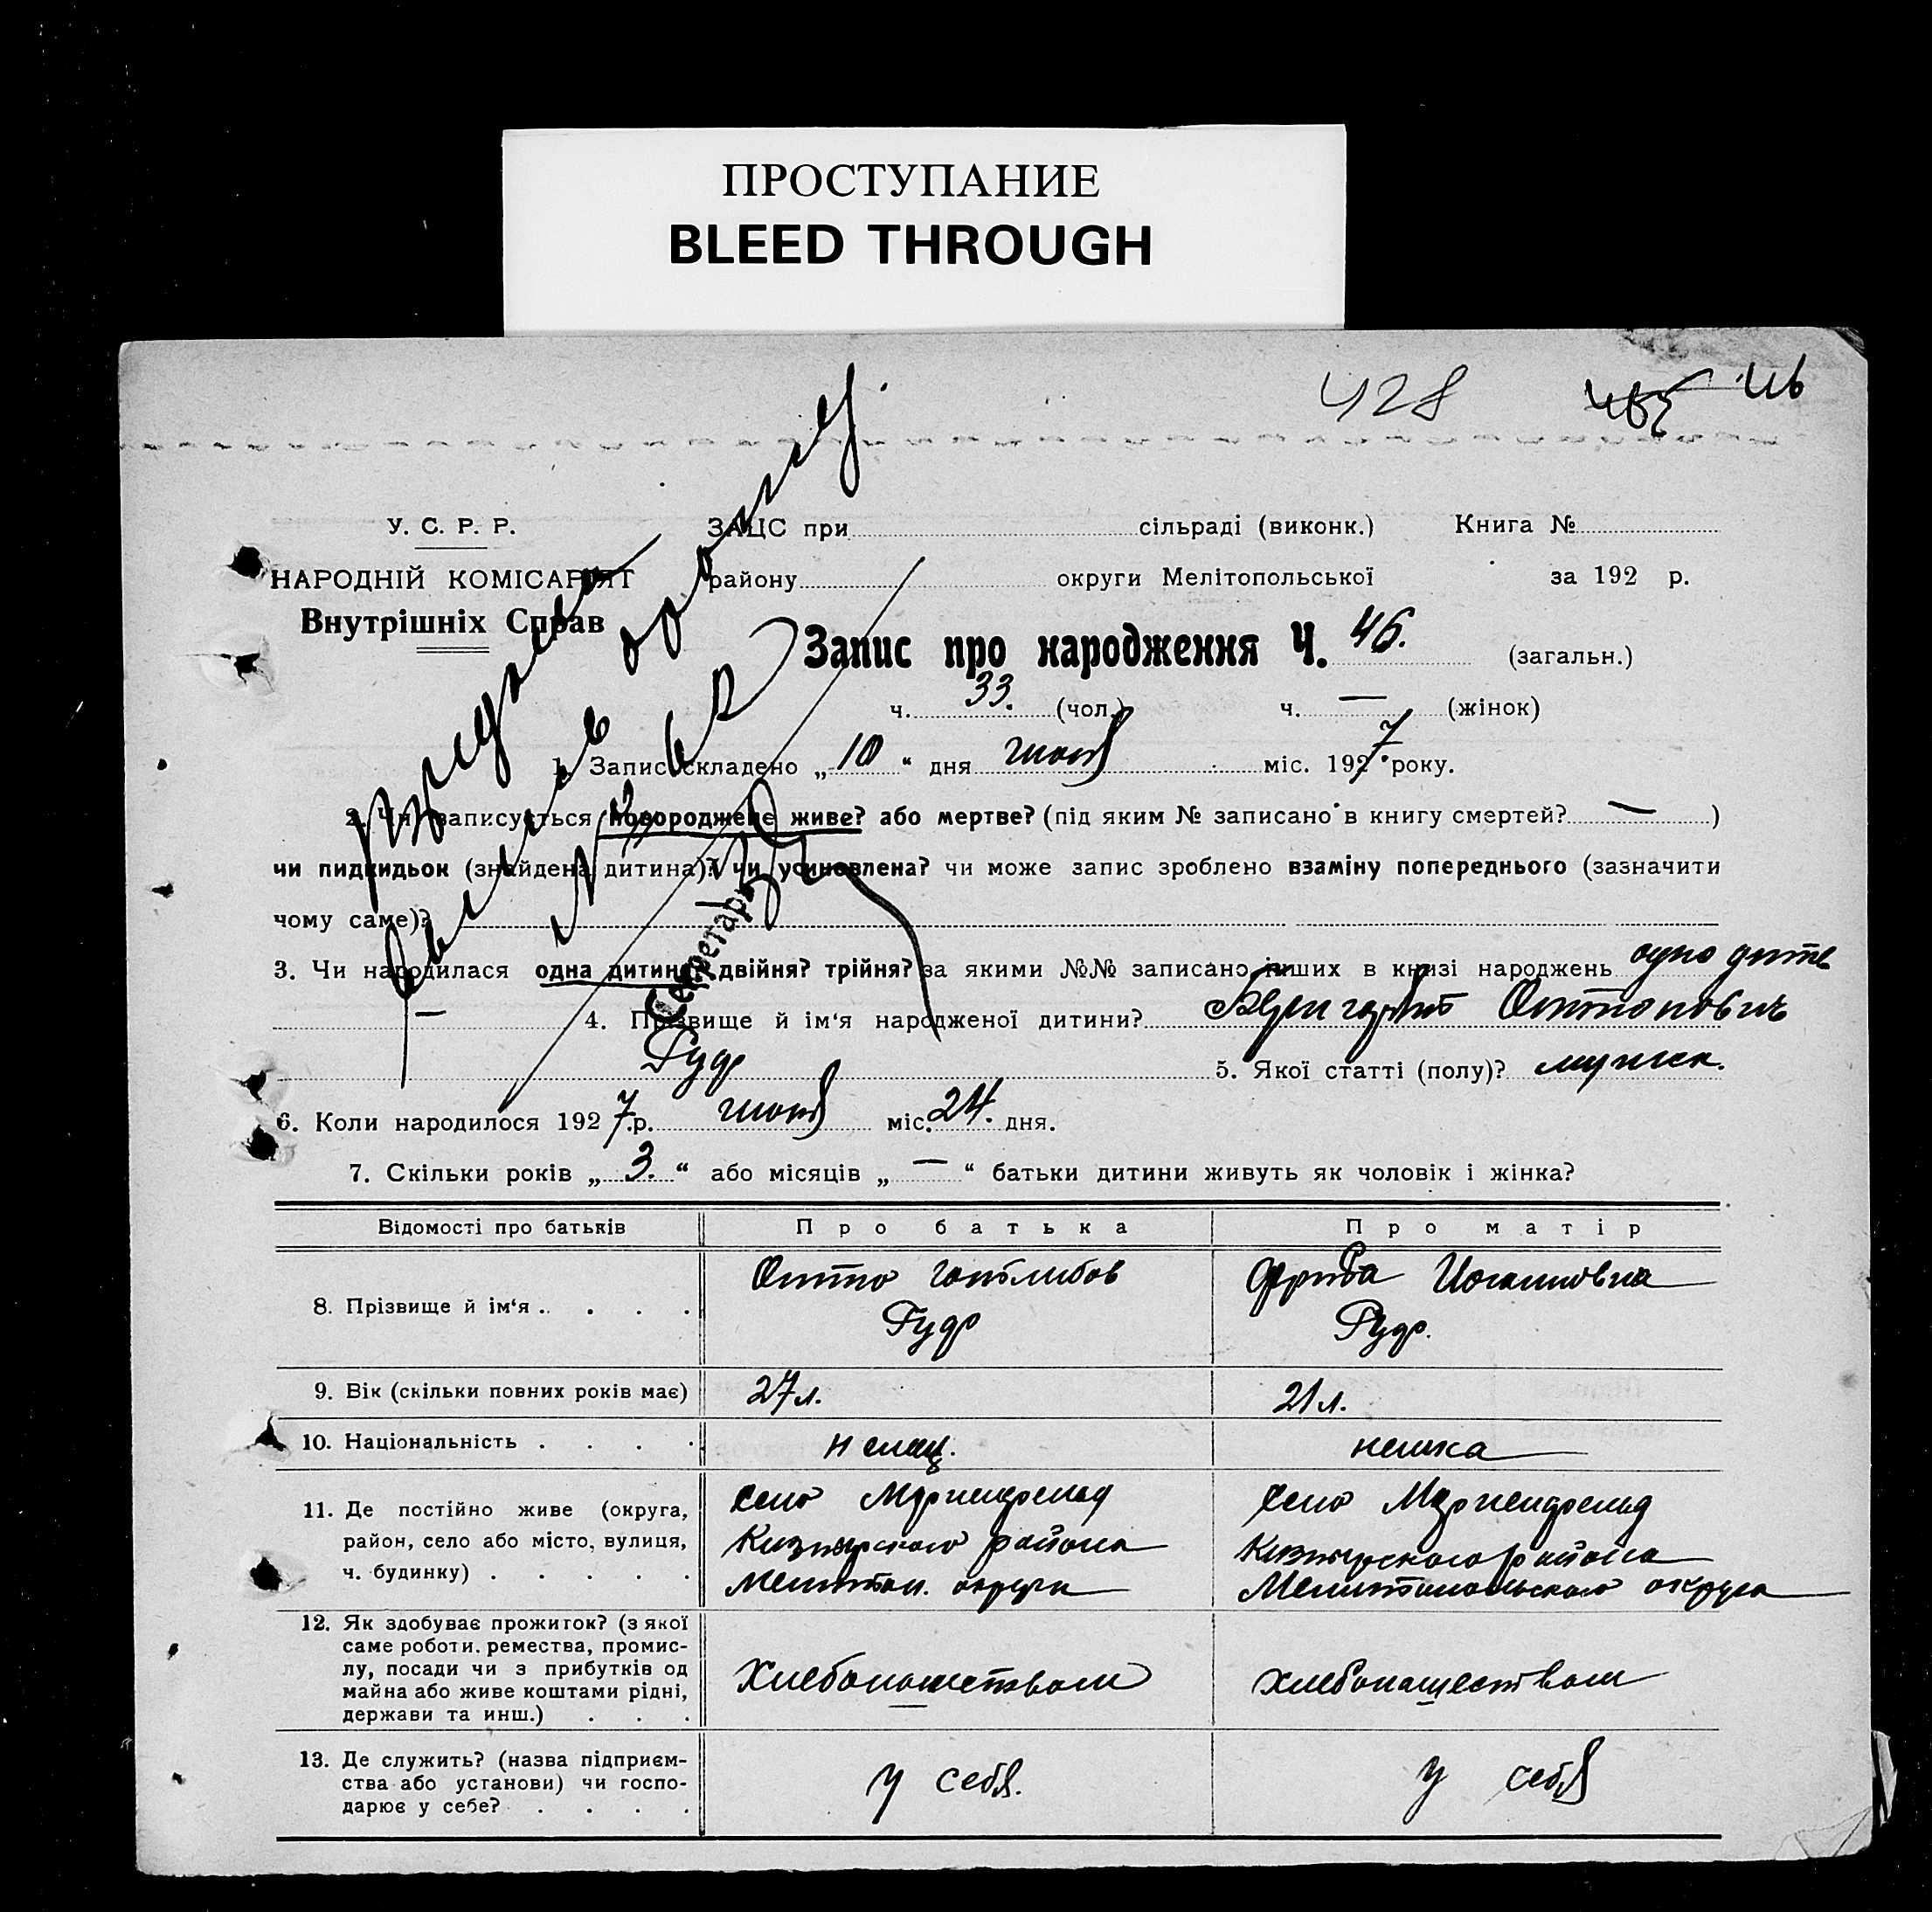 ПРОСТУПАНИЕ
BLEED THROUGH
428 46
У. С. Р. Р.
НАРОДНІЙ КОМІСАРІЯТ
Внутрішніх Справ
ЗАЦС при сільраді (виконк.) Книга №
району округи Мелітопольської за 192 р.
Запис про народження Ч. 46. (загальн.)
ч. 33. (чол.) ч. — (жінок)
1. Запис складено „ 10 “ дня міс. 1927 року.
2. Чи записується новороджене живе? або мертве? (під яким № записано в книгу смертей? — )
чи пидкидьок (знайдена дитина)? чи усиновлена? чи може запис зроблено взаміну попереднього (зазначити
чому саме)?
Секретарь
3. Чи народилася одна дитина, двійня? трійня? за якими №№ записано інших в книзі народжень одно дите
— 4. Прізвище й ім‘я народженої дитини? Оттонович
Гудр 5. Якої статті (полу)? мужск.
6. Коли народилося 1927 р. міс. 24. дня.
7. Скільки років „ 3. “ або місяців „ — “ батьки дитини живуть як чоловік і жінка?
Відомості про батьків Про батька Про матір
8. Прізвище й ім‘я Отто Готлибов Фрида Иогановна
Гудр Гудр.
9. Вік (скільки повних років має) 27 л. 21 л.
10. Національність немец. немка
11. Де постійно живе (округа, район, село або місто, вулиця, ч. будинку)
село Мариенфельд село Мариенфельд
Кизиярского района Кизиярского района
Мелитоп. округи Мелитопольского округа
12. Як здобуває прожиток? (з якої
саме роботи, ремества, промис-
лу, посади чи з прибутків од
майна або живе коштами рідні,
держави та инш.)
Хлебопашеством хлебопашеством
13. Де служить? (назва підприєм-
ства або установи) чи госпо-
дарює у себе?
у себя. у себя